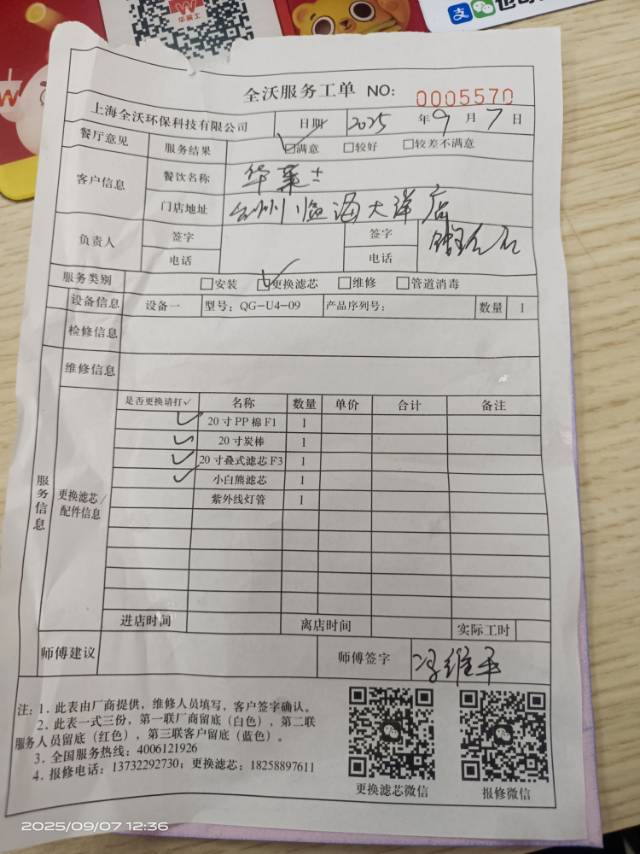 全沃服务工单 NO: 0005570
上海全沃环保科技有限公司 日期 2025 年 9 月 7 日
餐厅意见 服务结果 ☑满意 □较好 □较差不满意
客户信息 餐饮名称 华莱士
门店地址 台州临海大洋店
负责人 签字 签字
电话 电话
服务类别 □安装 ☑更换滤芯 □维修 □管道消毒
设备信息 设备一 型号：QG-U4-09 产品序列号： 数量 1
检修信息
维修信息
服务信息
更换滤芯/配件信息
是否更换请打✓ 名称 数量 单价 合计 备注
✓ 20寸PP棉F1 1
✓ 20寸炭棒 1
✓ 20寸叠式滤芯F3 1
✓ 小白熊滤芯 1
紫外线灯管 1
进店时间 离店时间 实际工时
师傅建议 师傅签字 冯维平
注：1、此表由厂商提供，维修人员填写，客户签字确认。
2、此表一式三份，第一联厂商留底（白色），第二联
服务人员留底（红色），第三联客户留底（蓝色）。
3、全国服务热线：4006121926
4、报修电话：13732292730；更换滤芯：18258897611
更换滤芯微信 报修微信
2025/09/07 12:36